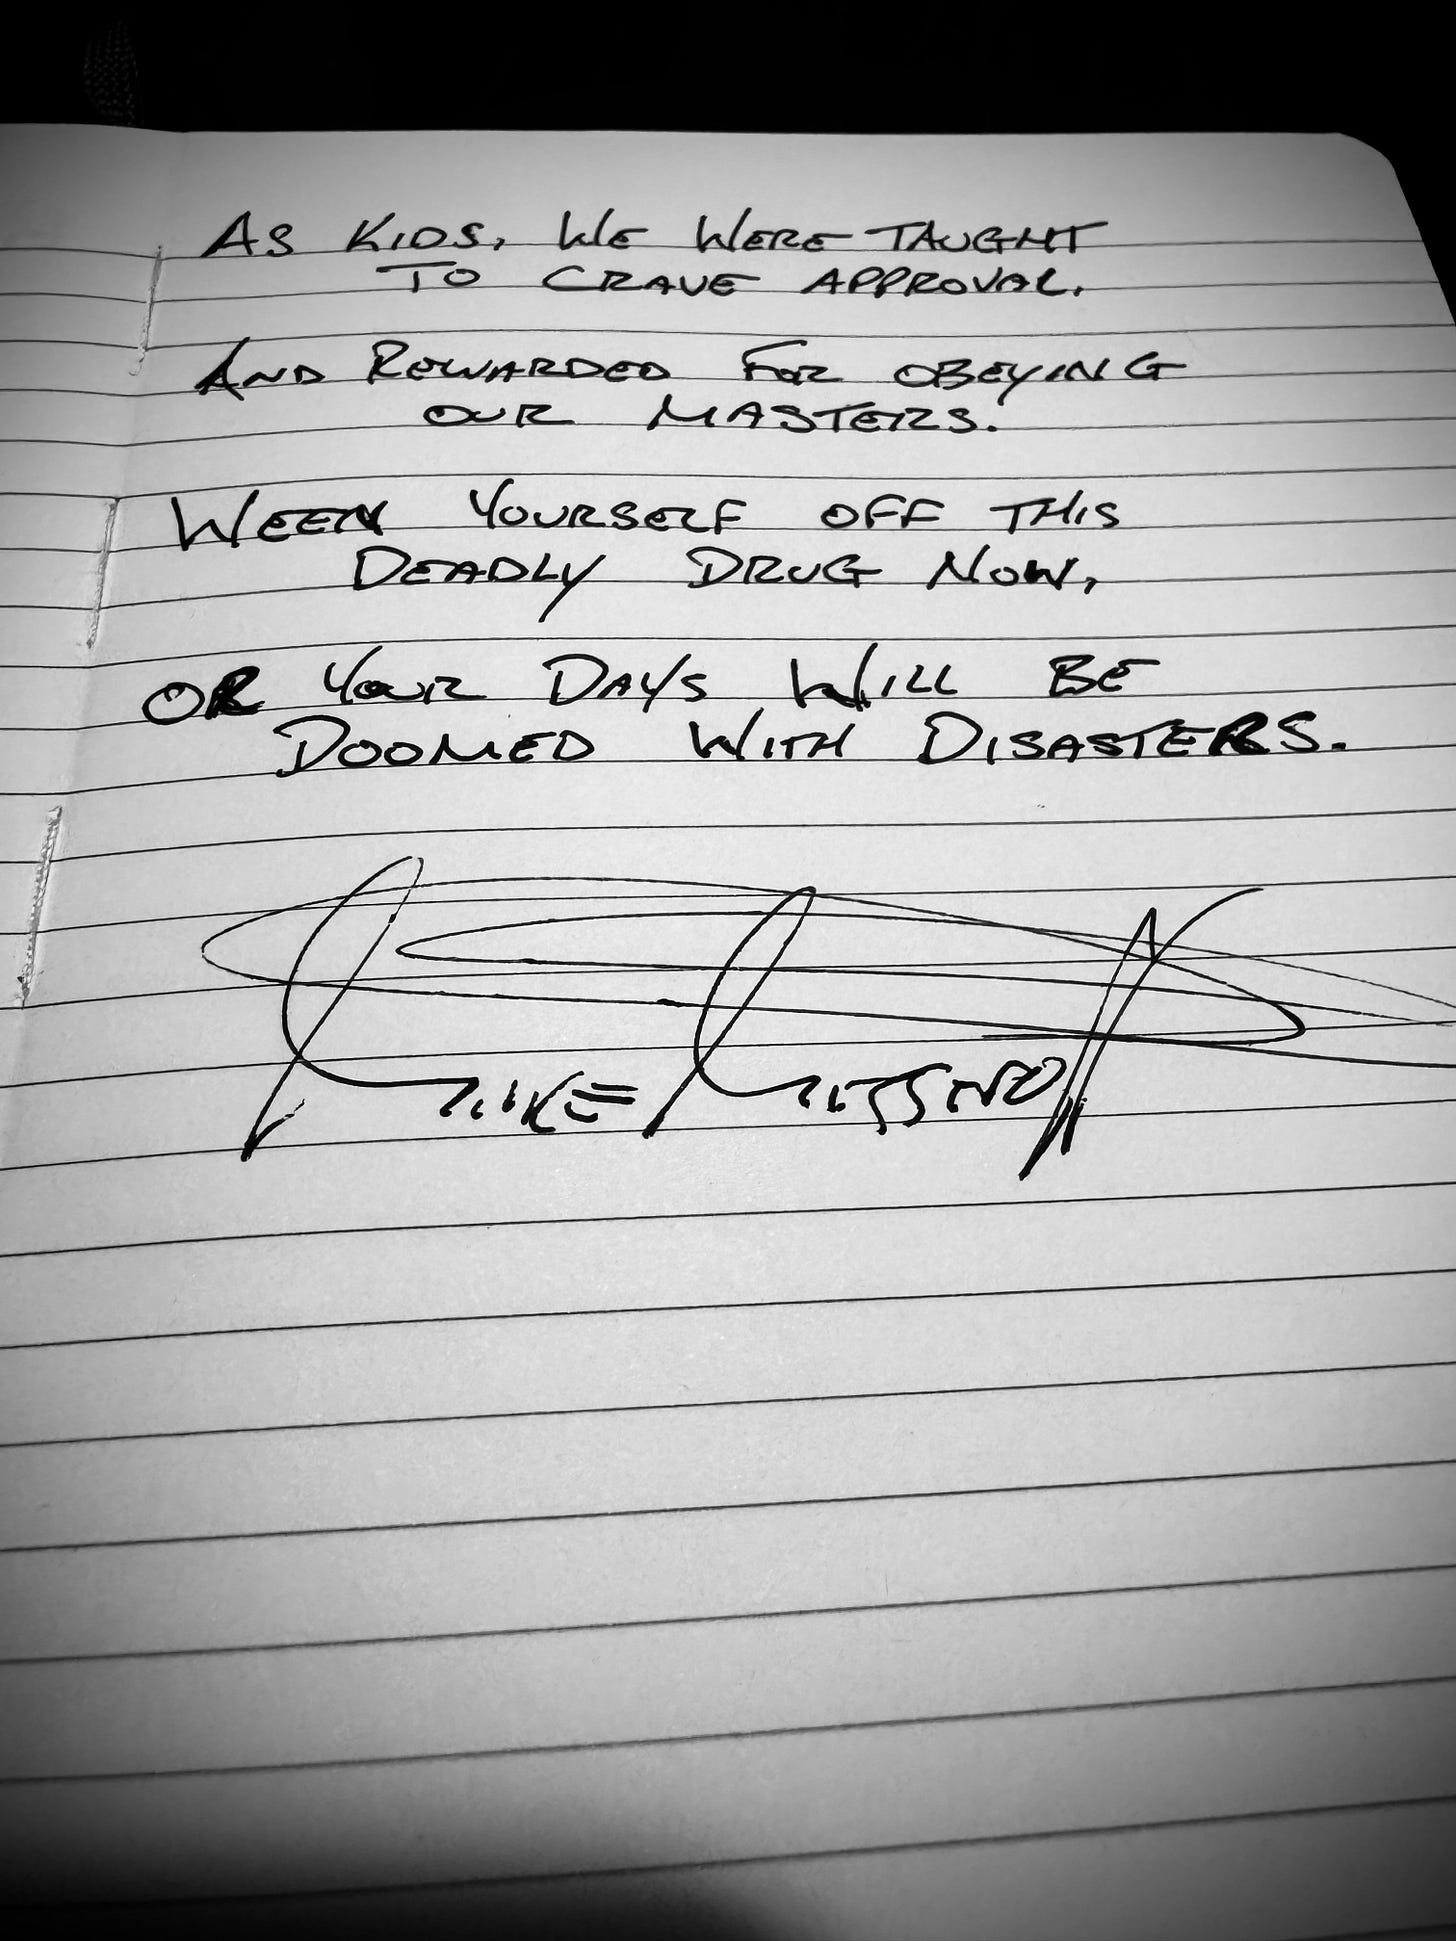 As Kids, We Were Taught
to Crave Approval.
And Rewarded for obeying
our Masters.
Ween Yourself off this
Deadly Drug Now,
or Your Days Will Be
Doomed With Disasters.